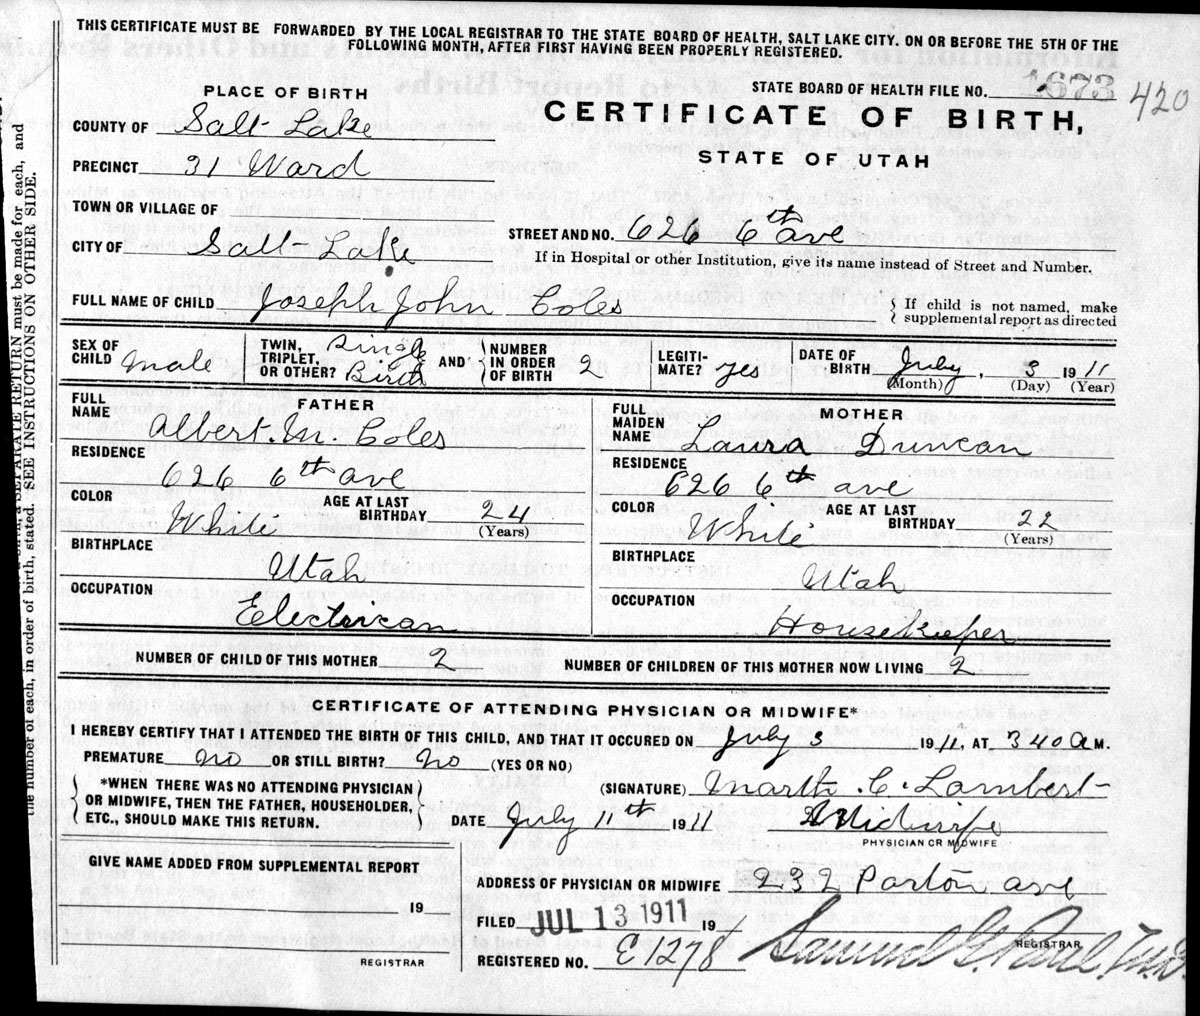 THIS CERTIFICATE MUST BE FORWARDED BY THE LOCAL REGISTRAR TO THE STATE BOARD OF HEALTH, SALT LAKE CITY, ON OR BEFORE THE 5TH OF THE
FOLLOWING MONTH, AFTER FIRST HAVING BEEN PROPERLY REGISTERED.
STATE BOARD OF HEALTH FILE NO. 1673 420
PLACE OF BIRTH
CERTIFICATE OF BIRTH,
STATE OF UTAH
COUNTY OF Salt Lake
PRECINCT 31 Ward
TOWN OR VILLAGE OF
CITY OF Salt Lake
STREET AND NO. 626 6th ave
If in Hospital or other Institution, give its name instead of Street and Number.
FULL NAME OF CHILD Joseph John Coles
If child is not named, make
supplemental report as directed
SEX OF CHILD male
TWIN, TRIPLET, OR OTHER? Single Birth
AND NUMBER IN ORDER OF BIRTH 2
LEGITIMATE? yes
DATE OF BIRTH July 3 1911
(Month) (Day) (Year)
FATHER
FULL NAME Albert. M. Coles
RESIDENCE 626 6th ave
COLOR White
AGE AT LAST BIRTHDAY 24 (Years)
BIRTHPLACE Utah
OCCUPATION Electrican
MOTHER
FULL MAIDEN NAME Laura Duncan
RESIDENCE 626 6th ave
COLOR White
AGE AT LAST BIRTHDAY 22 (Years)
BIRTHPLACE Utah
OCCUPATION Housekeeper
NUMBER OF CHILD OF THIS MOTHER 2 NUMBER OF CHILDREN OF THIS MOTHER NOW LIVING 2
CERTIFICATE OF ATTENDING PHYSICIAN OR MIDWIFE*
I HEREBY CERTIFY THAT I ATTENDED THE BIRTH OF THIS CHILD, AND THAT IT OCCURED ON July 3 1911, AT 3 40 A M.
PREMATURE no OR STILL BIRTH? no (YES OR NO)
*WHEN THERE WAS NO ATTENDING PHYSICIAN
OR MIDWIFE, THEN THE FATHER, HOUSEHOLDER,
ETC., SHOULD MAKE THIS RETURN.
(SIGNATURE) Marth. C. Lambert
DATE July 11th 1911 Midwife
PHYSICIAN OR MIDWIFE
GIVE NAME ADDED FROM SUPPLEMENTAL REPORT
19
REGISTRAR
ADDRESS OF PHYSICIAN OR MIDWIFE 232 ave
FILED JUL 13 1911 19
REGISTRAR
REGISTERED NO. E1278 Samuel G. Paul. M.D.
a SEPARATE RETURN must be made for each, and
the number of each, in order of birth, stated. SEE INSTRUCTIONS ON OTHER SIDE.